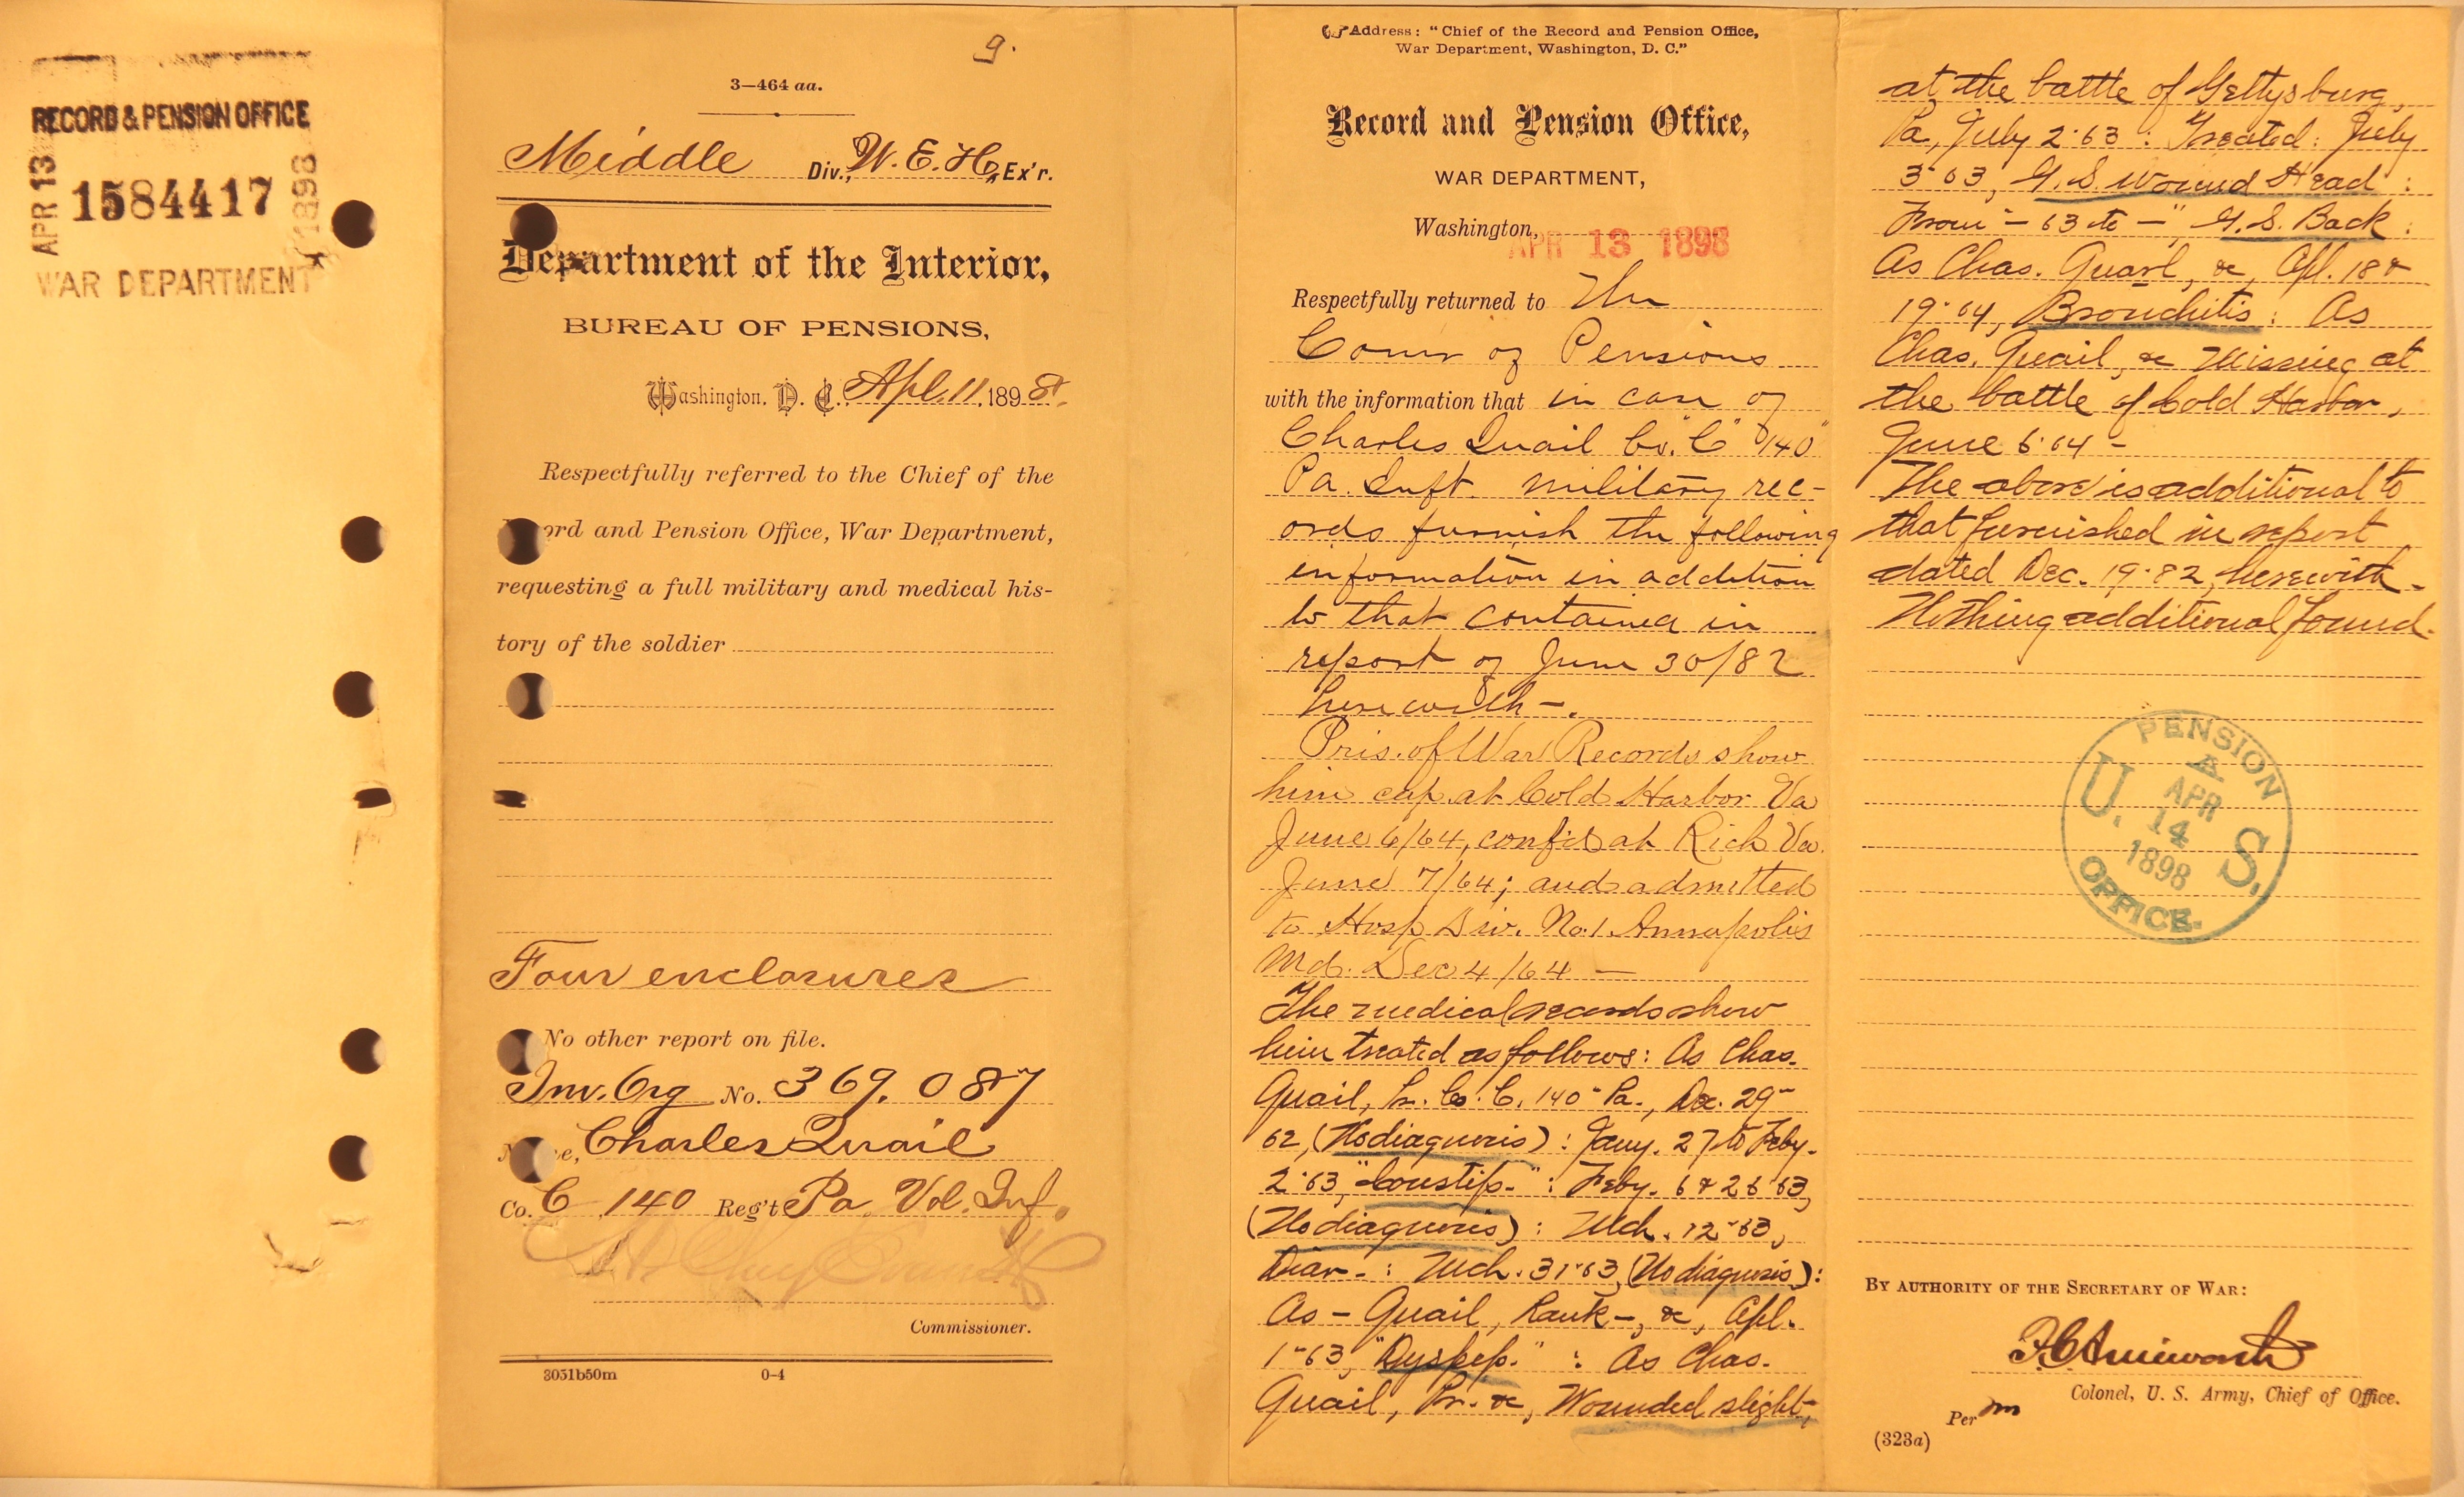 RECORD & PENSION OFFICE
APR 13
1584417
1898
WAR DEPARTMENT
9.
3—464 aa.
Middle Div., W. E. H., Ex'r.
Department of the Interior,
BUREAU OF PENSIONS,
Washington, D. C., Apl. 11, 1898.
Respectfully referred to the Chief of the
Record and Pension Office, War Department,
requesting a full military and medical his-
tory of the soldier
Four enclosures
No other report on file.
Inv. Org No. 369.087
Name, Charles Quail
Co. C 140 Reg't Pa. Vol. Inf.
Commissioner.
3051b50m 0-4
Address: "Chief of the Record and Pension Office,
War Department, Washington, D. C."
Record and Pension Office,
WAR DEPARTMENT,
Washington, APR 13 1898
Respectfully returned to The
Comr of Pensions
with the information that in case of
Charles Quail Co. "C" 140"
Pa. Inft. military rec-
ords furnish the following
information in addition
to that contained in
report of June 30/82
herewith—.
Pris. of War Records show
him cap. at Cold Harbor Va
June 6/64, confd at Rich Va.
June 7/64; and admitted
to Hosp Div. No. 1. Annapolis
Md. Dec 4/64 —
The medical records show
him treated as follows: As Chas.
Quail, Pr. Co. C. 140" Pa., Dec. 29-
62, (No diagnosis): Jany. 27 to Feby.
2-63, "Constip.": Feby. 6 & 26-63,
(No diagnosis): Mch. 12-63,
Diar-: Mch. 31-63, (No diagnosis):
As — Quail, Rank —, &c, Apl.
1-63, "Dyspep.": As Chas.
Quail, Pr. &c, Wounded slight,
at the battle of Gettysburg,
Pa, July 2-63: Treated: July
3-63, G. S. Wound Head:
From — 63 to —" G. S. Back:
As Chas. Quarl, &c, Apl. 18 &
19-64, Bronchitis: As
Chas. Quail, &c Missing at
the battle of Cold Harbor,
June 6-64 —
The above is additional to
that furnished in report
dated Dec. 19-82, herewith.
Nothing additional found.
PENSION
U. S.
APR
14
1898
OFFICE.
BY AUTHORITY OF THE SECRETARY OF WAR:
F. C. Ainsworth
Colonel, U. S. Army, Chief of Office.
Per m
(323a)